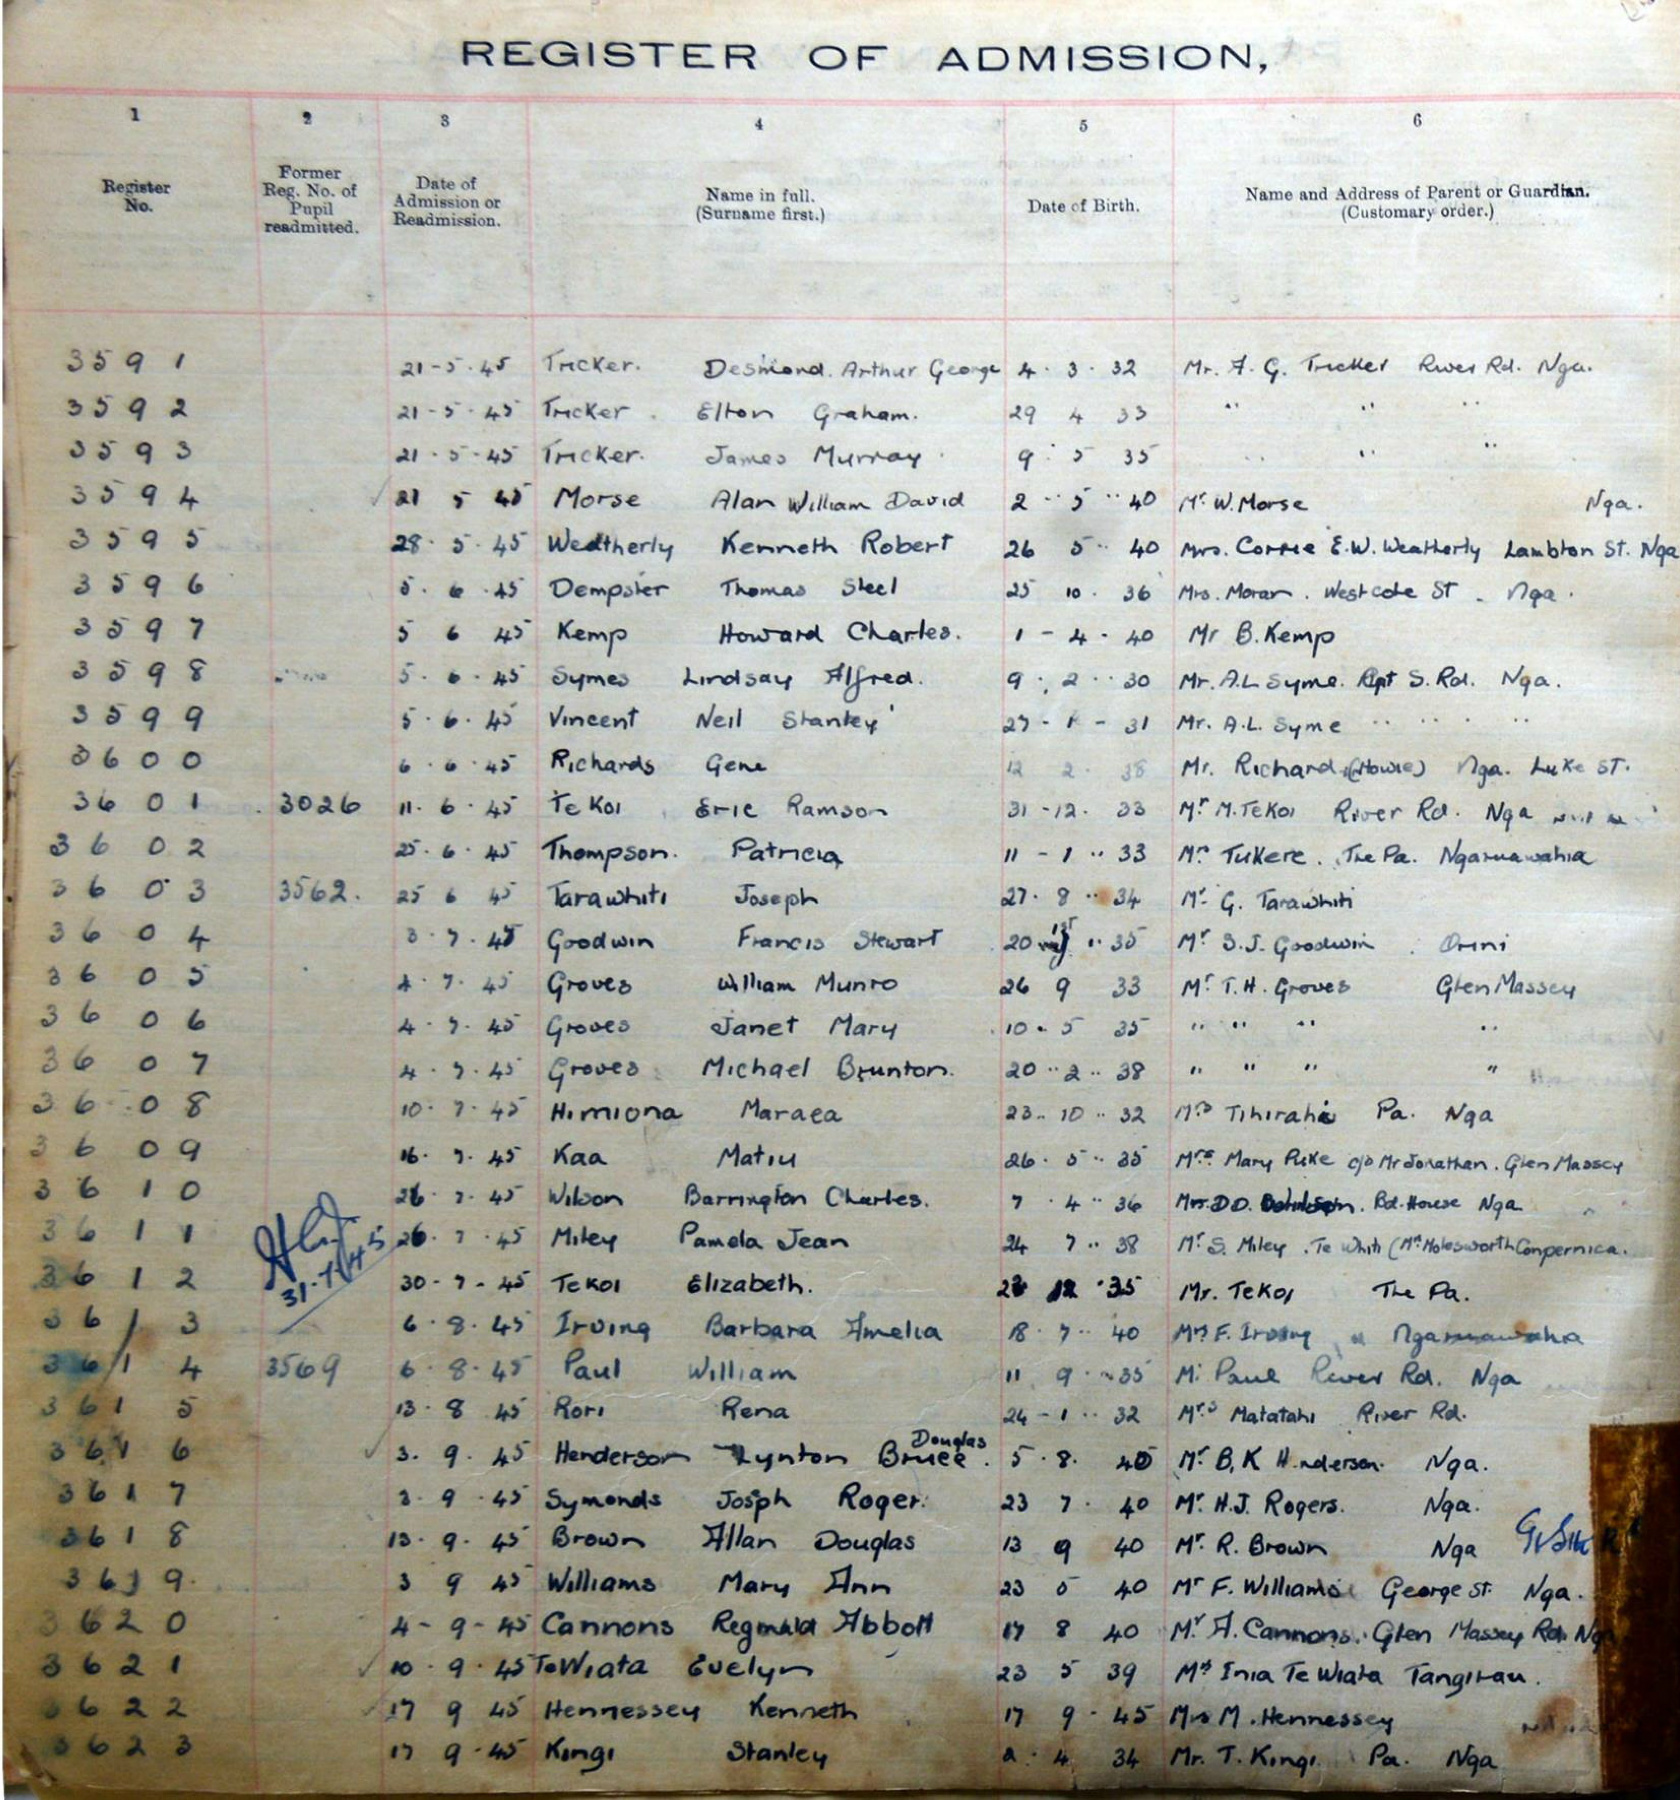 REGISTER OF ADMISSION,
1 2 3 4 5 6
Register No. Former Reg. No. of Pupil readmitted. Date of Admission or Readmission. Name in full. (Surname first.) Date of Birth. Name and Address of Parent or Guardian. (Customary order.)
3591 21-5-45 Tricker. Desmond. Arthur George 4. 3. 32 Mr. A. G. Tricker River Rd. Nga.
3592 21-5-45 Tricker. Elton Graham. 29 4 33 " " "
3593 21-5-45 Tricker. James Murray 9 5 35 " " "
3594 21 5 45 Morse Alan William David 2 5 40 Mr W. Morse Nga.
3595 28. 5. 45 Weatherly Kenneth Robert 26 5 40 Mrs. Corrie E.W. Weatherly Lambton St. Nga
3596 5. 6. 45 Dempster Thomas Steel 25 10. 36 Mrs. Moran. Westcote St. Nga.
3597 5 6 45 Kemp Howard Charles. 1-4-40 Mr B. Kemp
3598 5. 6. 45 Symes Lindsay Alfred. 9. 2. 30 Mr. A.L Syme. S. Rd. Nga.
3599 5. 6. 45 Vincent Neil Stanley 27-1-31 Mr. A.L. Syme " " " "
3600 6. 6. 45 Richards Gene 12 2. 38 Mr. Richard (Howie) Nga. Luke St.
3601 3026 11. 6. 45 TeKoi Eric Ramson 31-12. 33 Mr M. TeKoi River Rd. Nga
3602 25. 6. 45 Thompson. Patricia 11-1. 33 Tukere. The Pa. Ngaruawahia
3603 3562. 25 6 45 Tarawhiti Joseph 27. 8. 34 Mr G. Tarawhiti
3604 3. 7. 45 Goodwin Francis Stewart 20 35 Mr S.J. Goodwin Orini
3605 4. 7. 45 Groves William Munro 26 9 33 Mr T.H. Groves Glen Massey
3606 4. 7. 45 Groves Janet Mary 10. 5 35 " " " "
3607 4. 7. 45 Groves Michael Brunton. 20. 2. 38 " " " "
3608 10. 7. 45 Himiona Maraea 23. 10. 32 Pa. Nga
3609 16. 7. 45 Kaa Matiu 26. 5. 35 Mrs Mary c/o Mr Jonathan. Glen Massey
3610 26. 7. 45 Wilson Barrington Charles. 7. 4. 36 Mrs. D.D. Rd. House Nga
3611 26. 7. 45 Miley Pamela Jean 24 7. 38 Mr S. Miley. Te Whiti (Mrs Molesworth
31.7.45
3612 30-7-45 TeKoi Elizabeth. 12 35 Mr. TeKoi The Pa.
3613 6. 8. 45 Irving Barbara Amelia 18. 7. 40 F. Irving Ngaruawahia
3614 3569 6. 8. 45 Paul William 11 9. 35 Mr Paul River Rd. Nga
3615 13. 8 45 Rori Rena 24-1. 32 Mrs Matatahi River Rd.
3616 3. 9. 45 Henderson Lynton Bruce Douglas. 5. 8. 40 Mr B. K Henderson. Nga.
3617 3. 9. 45 Symonds Josph Roger. 23 7. 40 Mr H.J. Rogers. Nga.
3618 13. 9. 45 Brown Allan Douglas 13 9 40 Mr R. Brown Nga
3619. 3 9 45 Williams Mary Ann 23 5 40 Mr F. Williams George St. Nga.
3620 4-9-45 Cannons Reginald Abbott 17 8 40 Mr A. Cannons. Glen Massey Rd. Nga
3621 10. 9. 45 TeWiata Evelyn 23 5 39 Inia Te Wiata Tangirau.
3622 17 9 45 Hennessey Kenneth 17 9. 45 Mrs M. Hennessey
3623 17 9. 45 Kingi Stanley 2. 4 34 Mr. T. Kingi. Pa. Nga